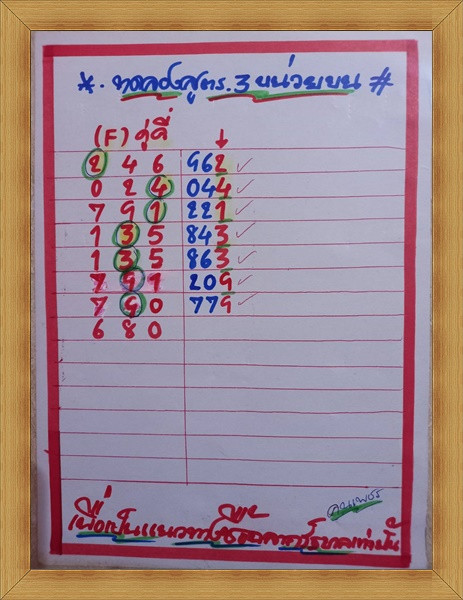 * . ทดลองสูตร. 3 หน่วยบน #
(F) คู่คี่ ↓
2 4 6 962 ✓
0 2 4 044 ✓
7 9 1 221 ✓
1 3 5 843 ✓
1 3 5 863 ✓
7 9 1 209 ✓
7 9 0 779 ✓
6 8 0
เพื่อเป็นแนวทาง
เท่านั้น